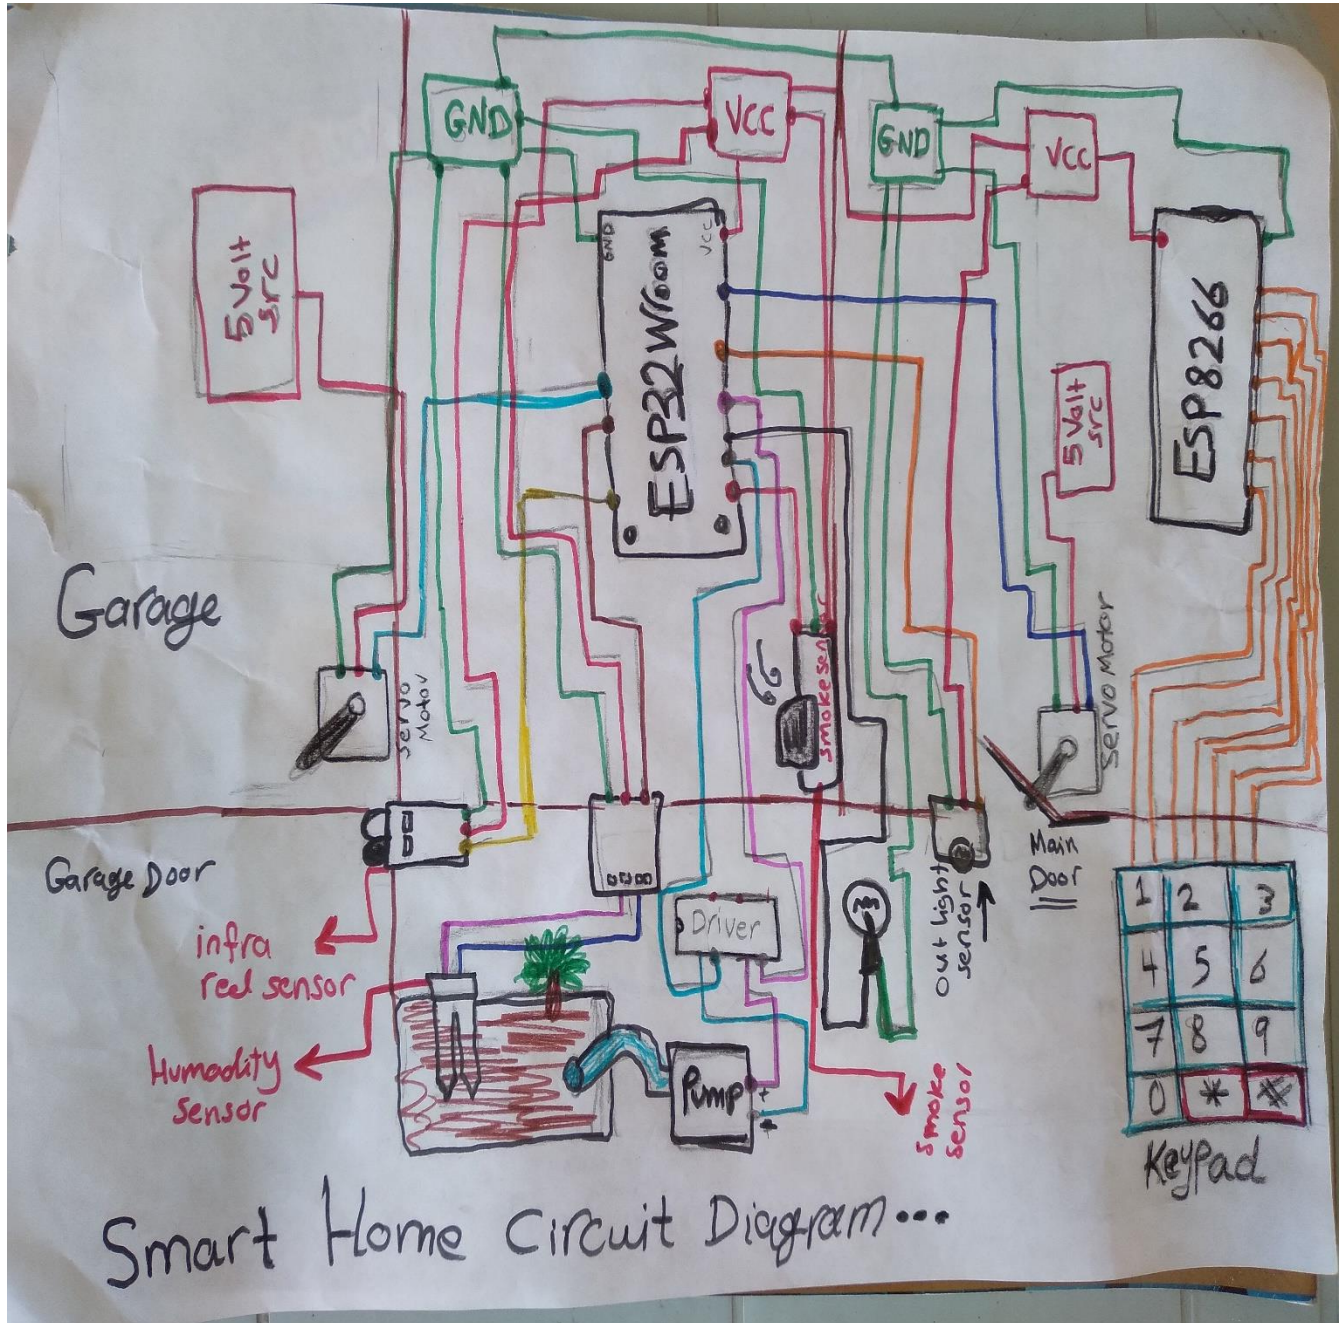 GND
VCC
GND
VCC
5 Volt
src
GND
VCC
ESP32Wroom
ESP8266
5 Volt
src
Garage
Servo
Motor
smoke sensor
Servo Motor
Garage Door
Main
Door
out light
sensor
infra
red sensor
Driver
1 2 3
4 5 6
7 8 9
0 * #
Humadity
sensor
Pump
+
smoke
sensor
Keypad
Smart Home Circuit Diagram...